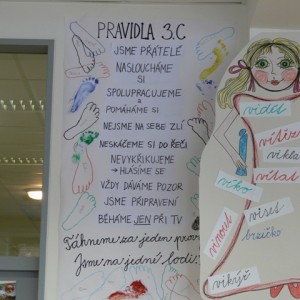 PRAVIDLA 3.C
JSME PŘÁTELÉ
NASLOUCHÁME
SI
SPOLUPRACUJEME
&
POMÁHÁME SI
NEJSME NA SEBE ZLÍ
NESKÁČEME SI DO ŘEČI
NEVYKŘIKUJEME
→ HLÁSÍME SE
VŽDY DÁVÁME POZOR
JSME PŘIPRAVENÍ
BĚHÁME JEN PŘI TV
Táhneme za jeden prov
Jsme na jedné lodi!
vidět
vítěz
vikla
vítat
víko
viset
vinout
brzičko
vikýř